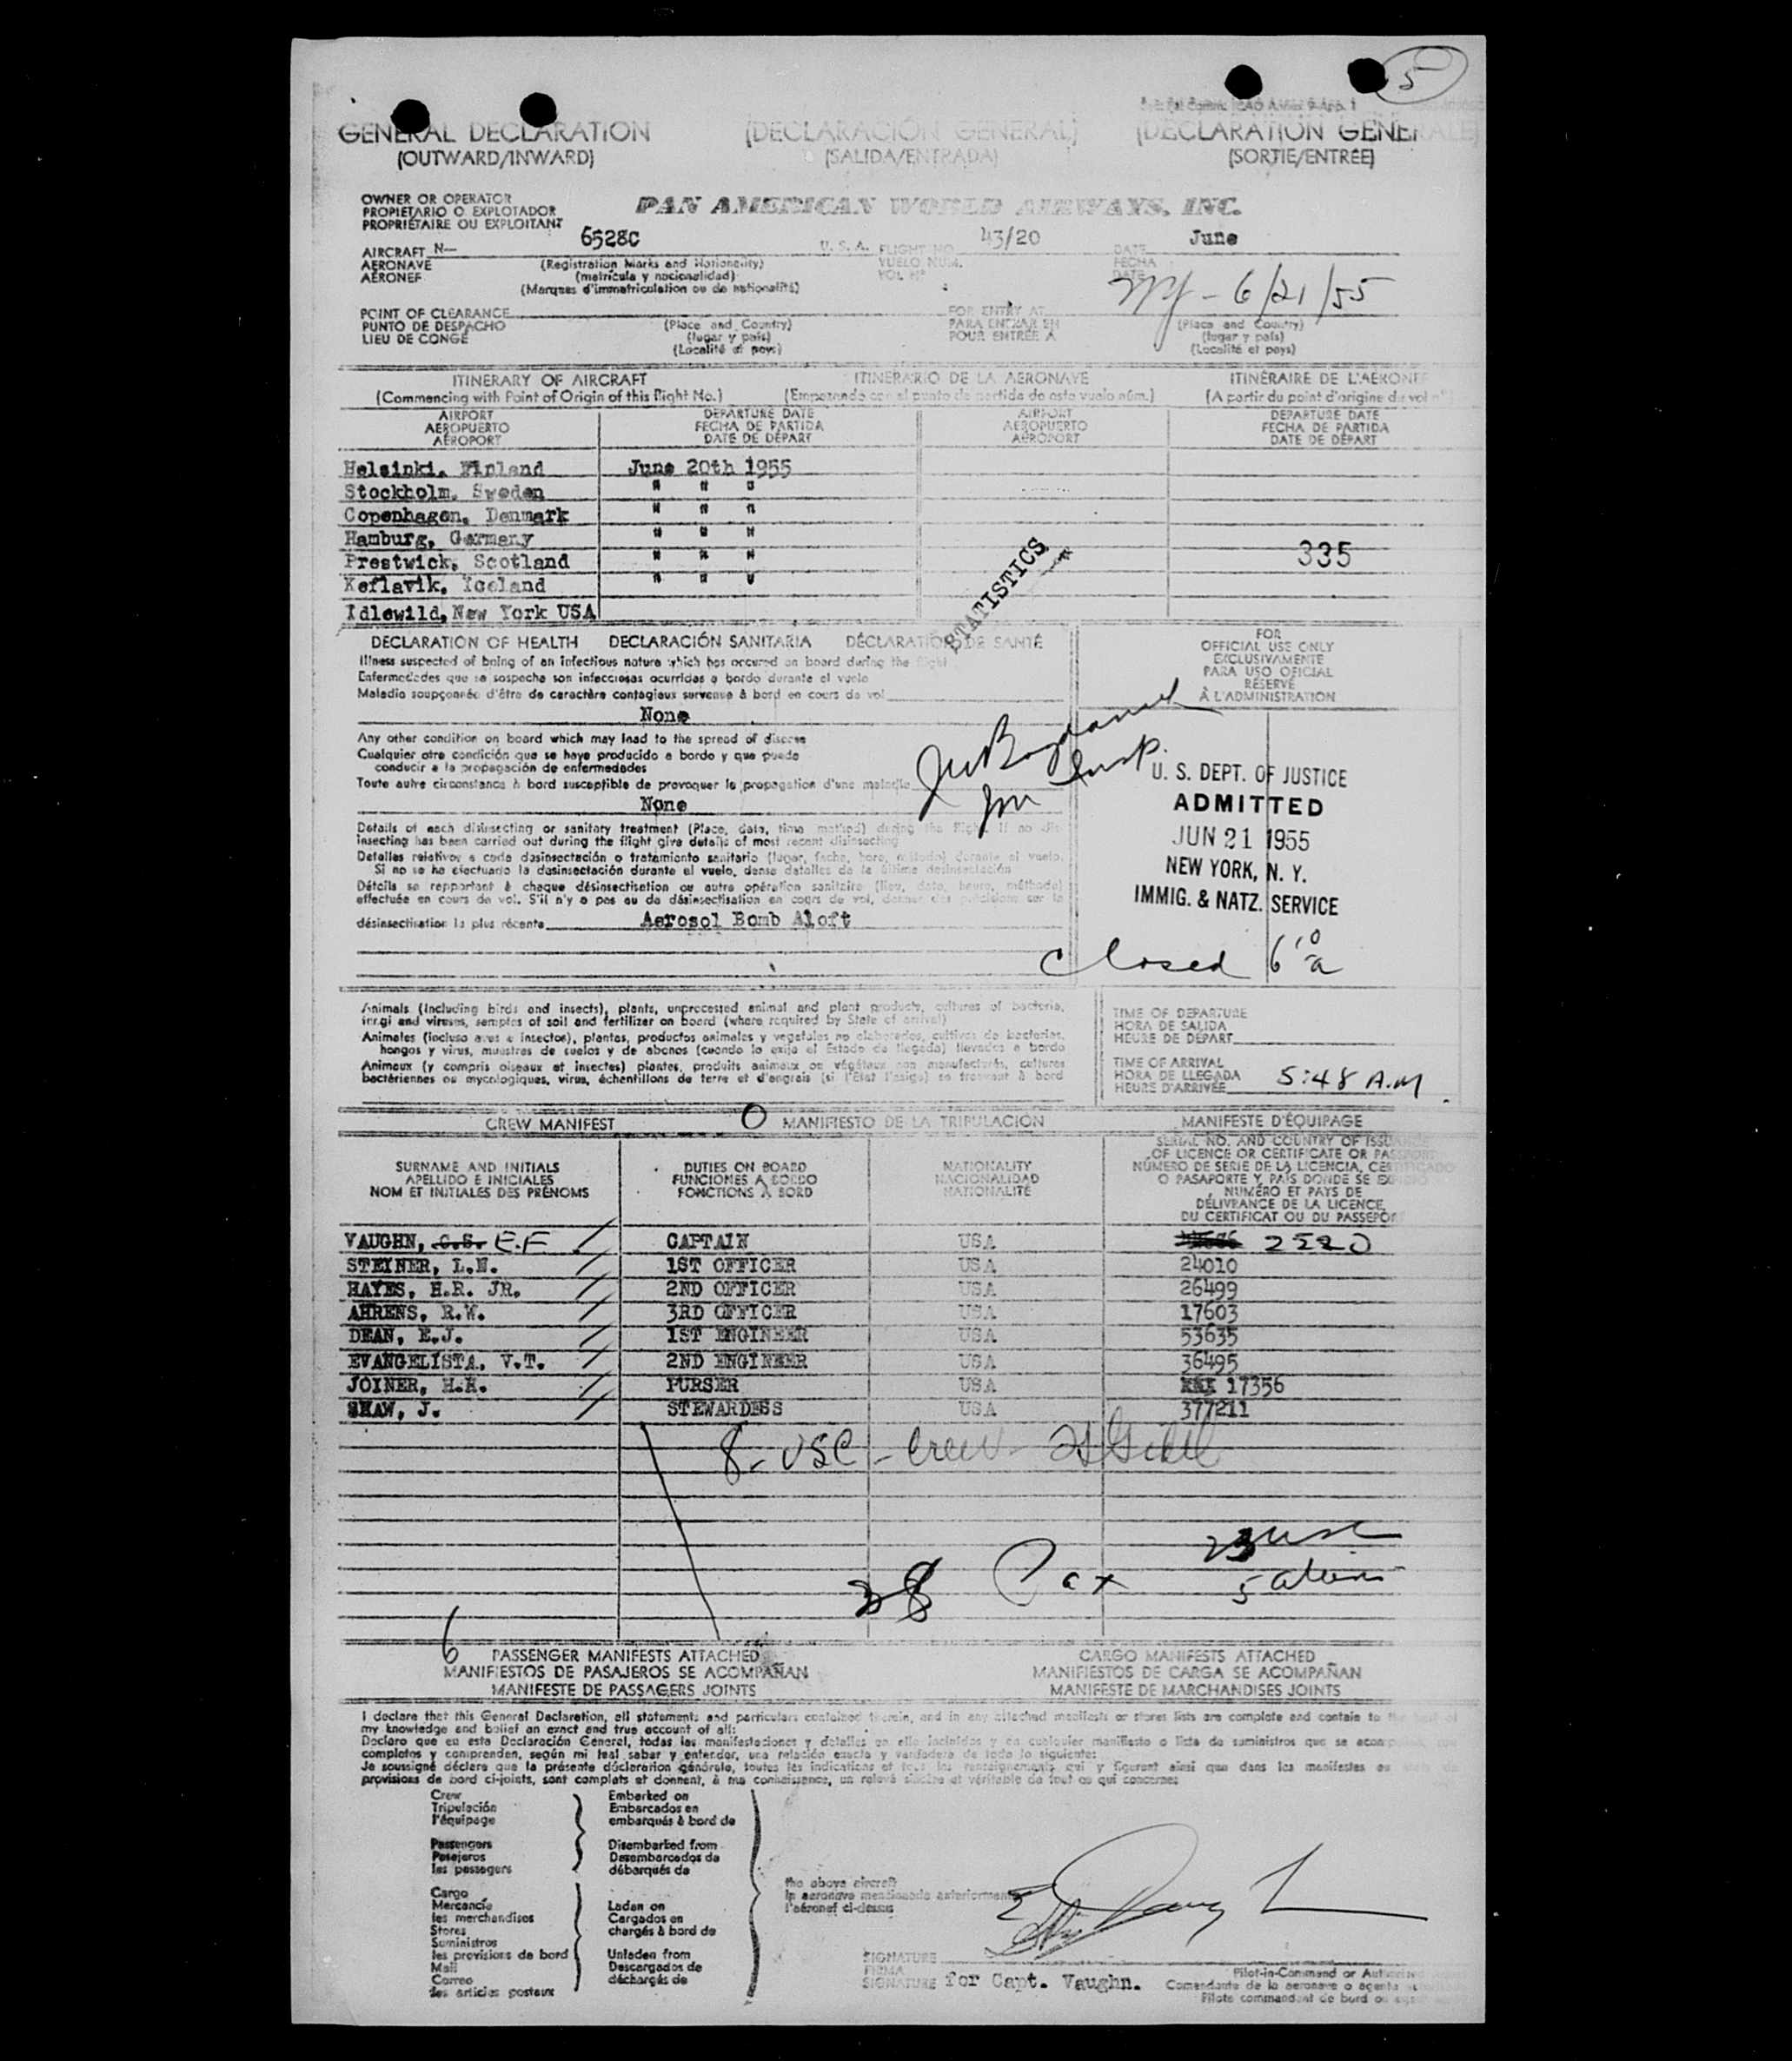 5
GENERAL DECLARATION (DECLARACIÓN GENERAL) (DECLARATION GENERALE)
(OUTWARD/INWARD) (SALIDA/ENTRADA) (SORTIE/ENTREE)
OWNER OR OPERATOR
PROPIETARIO O EXPLOTADOR
PROPRIÉTAIRE OU EXPLOITANT
PAN AMERICAN WORLD AIRWAYS, INC.
AIRCRAFT N— 6528C U. S. A. FLIGHT NO. 43/20 DATE June
AERONAVE (Registration Marks and Nationality) VUELO NUM. FECHA
AÉRONEF (matrícula y nacionalidad) VOL Nº DATE
(Marques d'immatriculation ou de nationalité)
NY - 6/21/55
POINT OF CLEARANCE FOR ENTRY AT
PUNTO DE DESPACHO (Place and Country) PARA ENTRAR EN (Place and Country)
LIEU DE CONGÉ (lugar y país) POUR ENTRÉE A (lugar y país)
(Localité et pays) (Localité et pays)
ITINERARY OF AIRCRAFT ITINERARIO DE LA AERONAVE ITINÉRAIRE DE L'AÉRONEF
(Commencing with Point of Origin of this flight No.) (Empezando con el punto de partida de este vuelo núm.) (A partir du point d'origine du vol nº)
AIRPORT DEPARTURE DATE AIRPORT DEPARTURE DATE
AEROPUERTO FECHA DE PARTIDA AEROPUERTO FECHA DE PARTIDA
AÉROPORT DATE DE DÉPART AÉROPORT DATE DE DÉPART
Helsinki, Finland June 20th 1955
Stockholm, Sweden " " "
Copenhagen, Denmark " " "
Hamburg, Germany " " "
Prestwick, Scotland " " " 335
Keflavik, Iceland " " "
Idlewild, New York USA
STATISTICS
DECLARATION OF HEALTH DECLARACIÓN SANITARIA DÉCLARATION DE SANTÉ
Illness suspected of being of an infectious nature which has occured on board during the flight
Enfermedades que se sospecha son infecciosas ocurridas a bordo durante el vuelo
Maladie soupçonnée d'être de caractère contagieux survenue à bord en cours de vol
None
Any other condition on board which may lead to the spread of disease
Cualquier otra condición que se haya producido a bordo y que pueda
conducir a la propagación de enfermedades
Toute autre circonstance à bord susceptible de provoquer la propagation d'une maladie
None
Details of each disinsecting or sanitary treatment (Place, date, time method) during the flight. If no dis-
insecting has been carried out during the flight give details of most recent disinsecting
Detalles relativos a cada desinsectación o tratamiento sanitario (lugar, fecha, hora, método) durante el vuelo.
Si no se ha efectuado la desinsectación durante el vuelo, dense detalles de la última desinsectación
Détails se rapportant à chaque désinsectisation ou autre opération sanitaire (lieu, date, heure, méthode)
effectuée en cours de vol. S'il n'y a pas eu de désinsectisation en cours de vol, donner des précisions sur la
désinsectisation la plus récente Aerosol Bomb Aloft
FOR
OFFICIAL USE ONLY
EXCLUSIVAMENTE
PARA USO OFICIAL
RÉSERVÉ
À L'ADMINISTRATION
Insp.
U. S. DEPT. OF JUSTICE
ADMITTED
JUN 21 1955
NEW YORK, N. Y.
IMMIG. & NATZ. SERVICE
Closed 6 10 a
Animals (Including birds and insects), plants, unprocessed animal and plant products, cultures of bacteria,
fungi and viruses, samples of soil and fertilizer on board (where required by State of arrival)
Animales (incluso aves e insectos), plantas, productos animales y vegetales no elaborados, cultivos de bacterias,
hongos y virus, muestras de suelos y de abonos (cuando lo exija el Estado de llegada) llevados a bordo
Animaux (y compris oiseaux et insectes) plantes, produits animaux ou végétaux non manufacturés, cultures
bactériennes ou mycologiques, virus, échantillons de terre et d'engrais (si l'État l'exige) se trouvant à bord
TIME OF DEPARTURE
HORA DE SALIDA
HEURE DE DÉPART
TIME OF ARRIVAL
HORA DE LLEGADA 5:48 A.M
HEURE D'ARRIVÉE
CREW MANIFEST O MANIFIESTO DE LA TRIPULACIÓN MANIFESTE D'ÉQUIPAGE
SURNAME AND INITIALS
APELLIDO E INICIALES
NOM ET INITIALES DES PRÉNOMS
DUTIES ON BOARD
FUNCIONES A BORDO
FONCTIONS À BORD
NATIONALITY
NACIONALIDAD
NATIONALITÉ
SERIAL NO. AND COUNTRY OF ISSUANCE
OF LICENCE OR CERTIFICATE OR PASSPORT
NÚMERO DE SERIE DE LA LICENCIA, CERTIFICADO
O PASAPORTE Y PAÍS DONDE SE EXPIDIO
NUMÉRO ET PAYS DE
DÉLIVRANCE DE LA LICENCE,
DU CERTIFICAT OU DU PASSEPORT
VAUGHN, C.S. E.F CAPTAIN USA 2520
STEINER, L.N. 1ST OFFICER USA 24010
HAYES, H.R. JR. 2ND OFFICER USA 26499
AHRENS, R.W. 3RD OFFICER USA 17603
DEAN, E.J. 1ST ENGINEER USA 53635
EVANGELISTA, V.T. 2ND ENGINEER USA 36495
JOINER, H.H. PURSER USA 17356
SHAW, J. STEWARDESS USA 377211
8 - USC - Crew
23 USC
28 Pax 5 aliens
6 PASSENGER MANIFESTS ATTACHED CARGO MANIFESTS ATTACHED
MANIFIESTOS DE PASAJEROS SE ACOMPAÑAN MANIFIESTOS DE CARGA SE ACOMPAÑAN
MANIFESTE DE PASSAGERS JOINTS MANIFESTE DE MARCHANDISES JOINTS
I declare that this General Declaration, all statements and particulars contained therein, and in any attached manifests or stores lists are complete and contain to the best of
my knowledge and belief an exact and true account of all:
Declaro que en esta Declaración General, todas las manifestaciones y detalles en ella incluídos y en cualquier manifiesto o lista de suministros que se acompañan, son
completos y comprenden, según mi leal saber y entender, una relación exacta y verdadera de todo lo siguiente:
Je soussigné déclare que la présente déclaration générale, toutes les indications et tous les renseignements qui y figurent ainsi que dans les manifestes ou
provisions de bord ci-joints, sont complets et donnent, à ma connaissance, un relevé sincère et véritable de tout ce qui concerne:
Crew Embarked on
Tripulación Embarcados en
l'équipage embarqués à bord de
Passengers Disembarked from
Pasajeros Desembarcados de
les passagers débarqués de
Cargo
Mercancía Laden on
les marchandises Cargados en
Stores chargés à bord de
Suministros
les provisions de bord Unladen from
Mail Descargados de
Correo déchargés de
les articles postaux
the above aircraft
la aeronave mencionada anteriormente
l'aéronef ci-dessus
SIGNATURE
FIRMA
SIGNATURE for Capt. Vaughn.
Pilot-in-Command or Authorized
Comandante de la aeronave o agente
Pilote commandant de bord ou